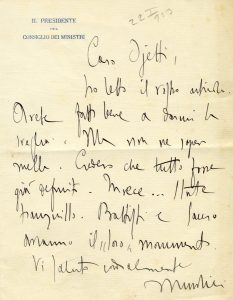 IL PRESIDENTE
DEL
CONSIGLIO DEI MINISTRI
Caro Ojetti,
ho letto il vostro articolo.
Avete fatto bene a darmi la
sveglia. Ma non ne sapevo
nulla. Credevo che tutto fosse
già definito. Invece... State
tranquillo. Battisti e Sauro
avranno il "loro" monumento.
Vi saluto cordialmente
Mussolini